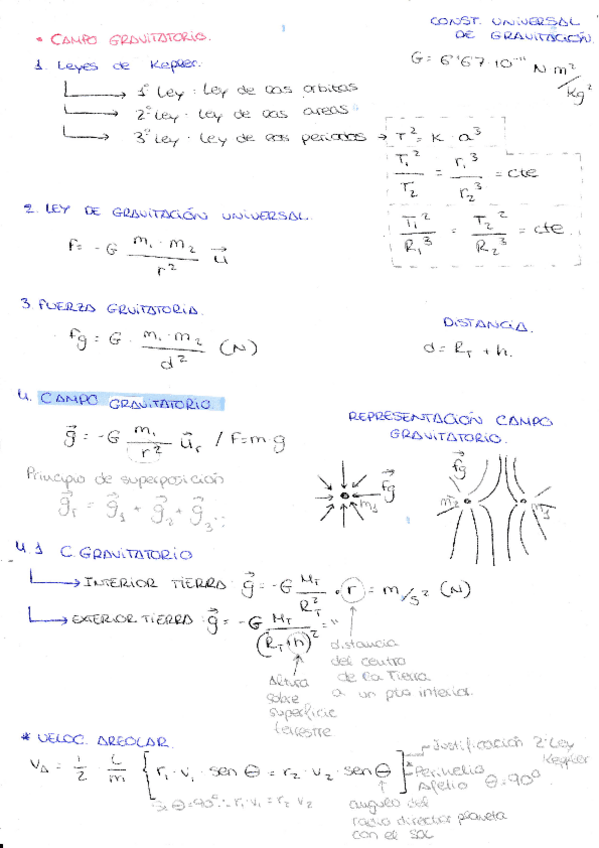 • CAMPO GRAVITATORIO.
CONST. UNIVERSAL
DE GRAVITACIÓN.
G = 6'67·10⁻¹¹ N m²/kg²
1. Leyes de Kepler.
1º Ley · Ley de las órbitas
2º Ley · Ley de las areas
3º Ley · Ley de los periodos → T² = K · a³
T₁²/T₂ = r₁³/r₂³ = cte
T₁²/R₁³ = T₂²/R₂³ = cte.
2. LEY DE GRAVITACIÓN UNIVERSAL.
F = -G m₁·m₂/r² u⃗
3. FUERZA GRVITATORIA.
Fg = G · m₁·m₂/d² (N)
DISTANCIA.
d = R_T + h.
4. CAMPO GRAVITATORIO.
g⃗ = -G m₁/r² u⃗ᵣ / F=m·g
REPRESENTACIÓN CAMPO
GRAVITATORIO.
Principio de superposición
g⃗ᵣ = g⃗₁ + g⃗₂ + g⃗₃...
f⃗g
m₁
f⃗g
m₂
m₁
4.1 C. GRAVITATORIO
→ INTERIOR TIERRA g⃗ = -G M_T/R_T² · r = m/s² (N)
→ EXTERIOR TIERRA g⃗ = -G M_T/(R_T+h)² = "
distancia
del centro
de la Tierra
a un pto interior.
Altura
sobre
superficie
terrestre
* VELOC. AREOLAR.
V_A = 1/2 · L/m { r₁·v₁·sen θ = r₂·v₂·sen θ ]
Justificación 2º Ley
Keppler
Perihelio
Afelio θ=90º
Si θ=90º ∴ r₁·v₁ = r₂ v₂
angulo del
radio director planeta
con el sol